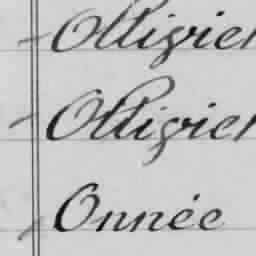 Ollivier
Ollivier
Onnée